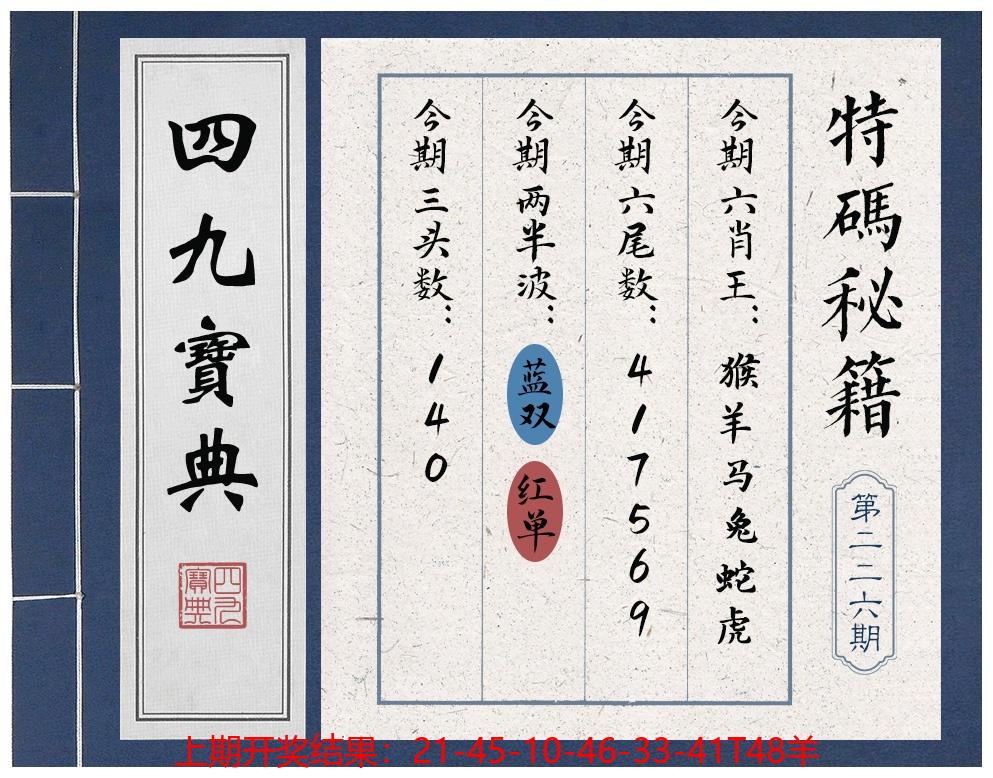 特碼秘籍
第二二六期
今期六肖王：猴羊马兔蛇虎
今期六尾数：417569
今期两半波：蓝双 红单
今期三头数：140
四九寶典
四九寶典
上期开奖结果：21-45-10-46-33-41T48羊